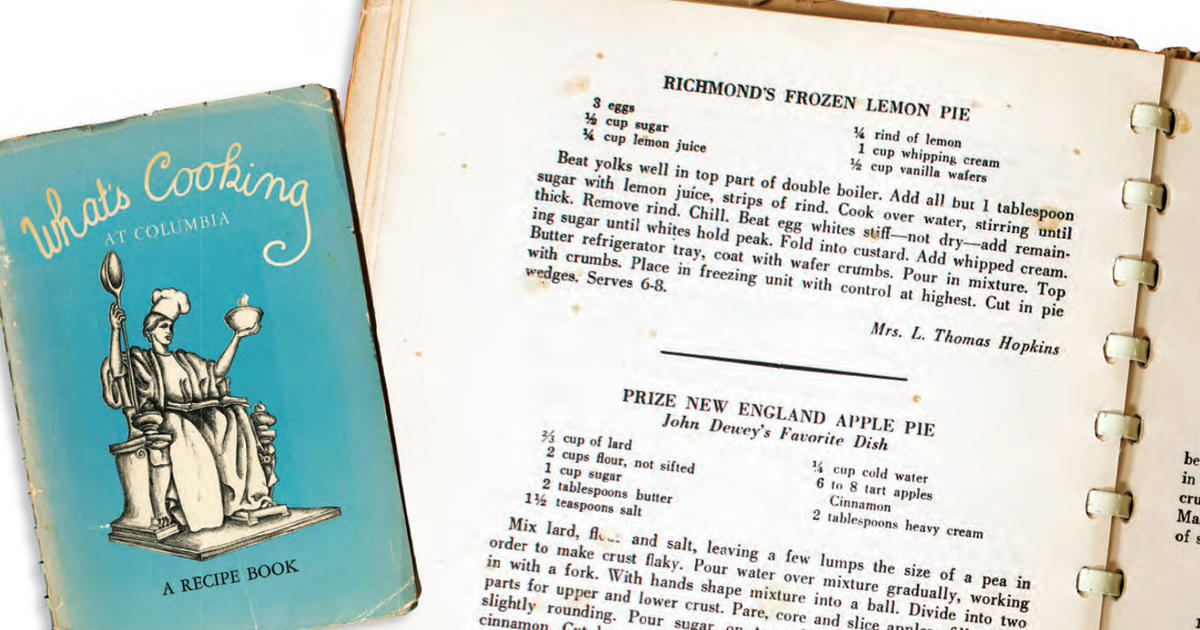 What's Cooking
AT COLUMBIA
A RECIPE BOOK
RICHMOND'S FROZEN LEMON PIE
3 eggs
½ cup sugar
¼ cup lemon juice
¼ rind of lemon
1 cup whipping cream
½ cup vanilla wafers
Beat yolks well in top part of double boiler. Add all but 1 tablespoon
sugar with lemon juice, strips of rind. Cook over water, stirring until
thick. Remove rind. Chill. Beat egg whites stiff—not dry—add remain-
ing sugar until whites hold peak. Fold into custard. Add whipped cream.
Butter refrigerator tray, coat with wafer crumbs. Pour in mixture. Top
with crumbs. Place in freezing unit with control at highest. Cut in pie
wedges. Serves 6-8.
Mrs. L. Thomas Hopkins
PRIZE NEW ENGLAND APPLE PIE
John Dewey's Favorite Dish
⅔ cup of lard
2 cups flour, not sifted
1 cup sugar
2 tablespoons butter
1½ teaspoons salt
¼ cup cold water
6 to 8 tart apples
Cinnamon
2 tablespoons heavy cream
Mix lard, and salt, leaving a few lumps the size of a pea in
order to make crust flaky. Pour water over mixture gradually, working
in with a fork. With hands shape mixture into a ball. Divide into two
parts for upper and lower crust. Pare, core and slice
slightly rounding. Pour sugar
cinnamon.
be
in
cru
Ma
of s